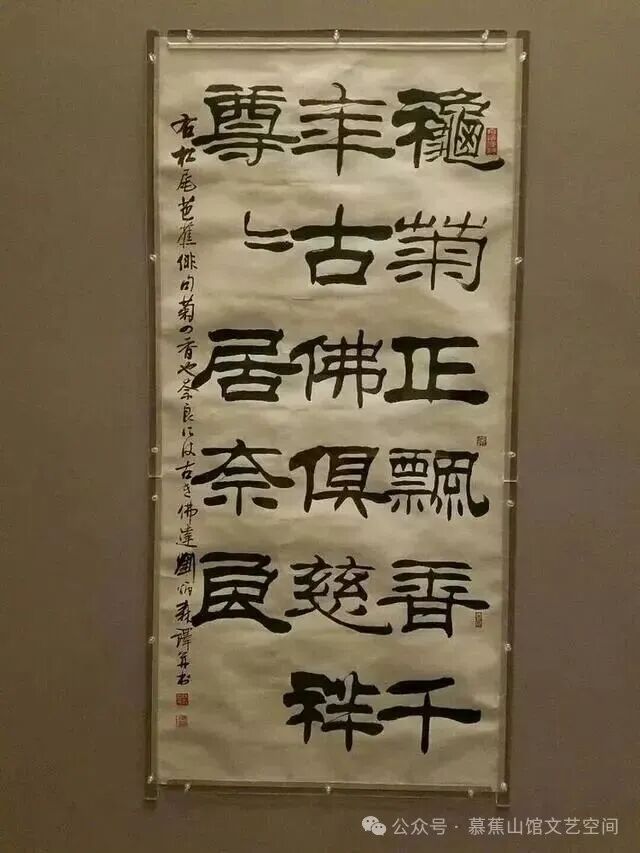 龝菊正飄香千
年古佛俱慈祥
尊〻居奈良
右松尾芭蕉俳句菊の香や奈良には古き佛達劉炳森譯并书
公众号·慕蕉山馆文艺空间